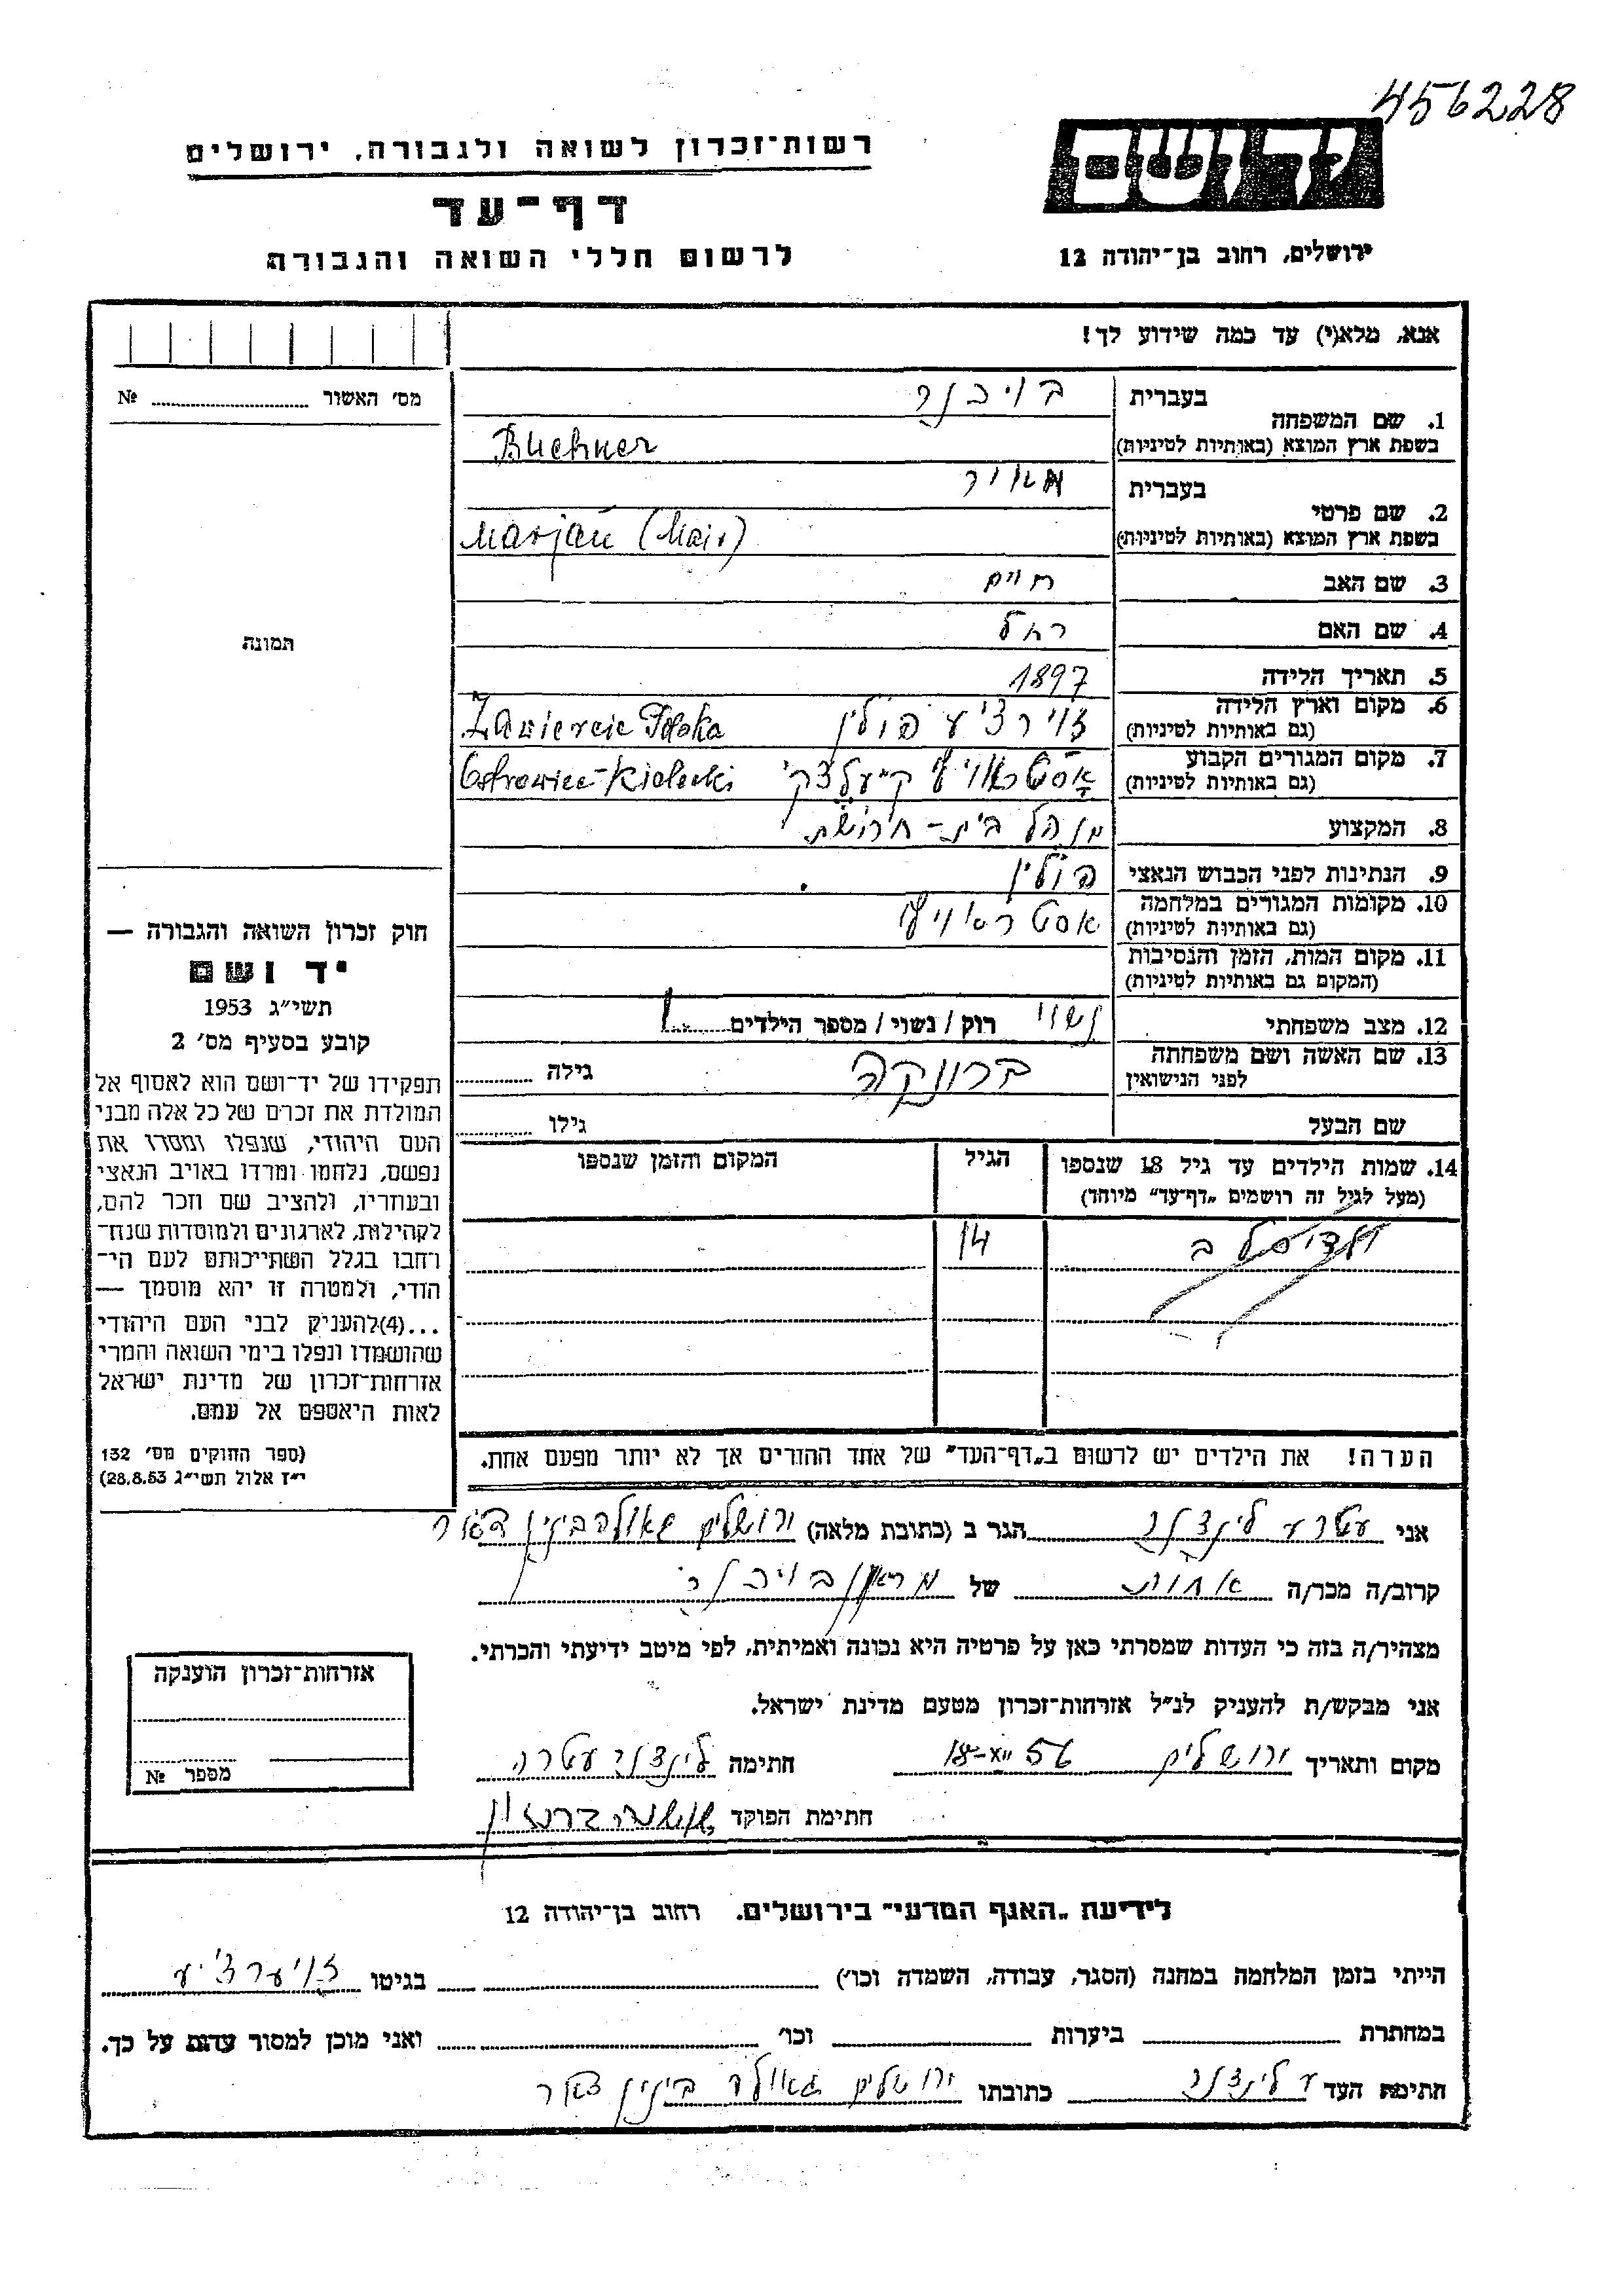 456228
יד ושם
ירושלים, רחוב בן־יהודה 12
רשות־זכרון לשואה ולגבורה, ירושלים
דף־עד
לרשום חללי השואה והגבורה
אנא, מלא(י) עד כמה שידוע לך!
מס׳ האשור № 
1. שם המשפחה בעברית בויכנר
בשפת ארץ המוצא (באותיות לטיניות) Buchner
2. שם פרטי בעברית מאיר
בשפת ארץ המוצא (באותיות לטיניות) Marjan (Mair)
3. שם האב חיים
4. שם האם רחל
5. תאריך הלידה 1897
6. מקום וארץ הלידה זוירצ׳ע פולין
(גם באותיות לטיניות) Zawiercie Polska
7. מקום המגורים הקבוע
(גם באותיות לטיניות) Ostrowiec-Kielecki
8. המקצוע מנהל בית-חרושת
9. הנתינות לפני הכבוש הנאצי פולין
10. מקומות המגורים במלחמה
(גם באותיות לטיניות)
11. מקום המות, הזמן והנסיבות
(המקום גם באותיות לטיניות)
12. מצב משפחתי נשוי רוק / נשוי / מספר הילדים 1
13. שם האשה ושם משפחתה ברונקה גילה
לפני הנישואין
שם הבעל גילו
14. שמות הילדים עד גיל 18 שנספו הגיל המקום והזמן שנספו
(מעל לגיל זה רושמים „דף־עד״ מיוחד)
14
הערה! את הילדים יש לרשום ב„דף־העד״ של אחד ההורים אך לא יותר מפעם אחת.
תמונה
חוק זכרון השואה והגבורה —
יד ושם
תשי״ג 1953
קובע בסעיף מס׳ 2
תפקידו של יד־ושם הוא לאסוף אל
המולדת את זכרם של כל אלה מבני
העם היהודי, שנפלו ומסרו את
נפשם, נלחמו ומרדו באויב הנאצי
ובעוזריו, ולהציב שם וזכר להם,
לקהילות, לארגונים ולמוסדות שנח־
רחבו בגלל השתייכותם לעם הי־
הודי, ולמטרה זו יהא מוסמך —
...(4)להעניק לבני העם היהודי
שהושמדו ונפלו בימי השואה והמרי
אזרחות־זכרון של מדינת ישראל
לאות היאספם אל עמם.
(ספר החוקים מס׳ 132
י״ז אלול תשי״ג 28.8.53)
אני עטרע לינצנר הגר ב (כתובת מלאה) ירושלים
קרוב/ה מכר/ה אחות של בויכנר
מצהיר/ה בזה כי העדות שמסרתי כאן על פרטיה היא נכונה ואמיתית, לפי מיטב ידיעתי והכרתי.
אני מבקש/ת להעניק לנ״ל אזרחות־זכרון מטעם מדינת ישראל.
מקום ותאריך ירושלים 18-XII 56 חתימה לינצנר עטרה
חתימת הפוקד
אזרחות־זכרון הוענקה
מספר №
לידיעת „האגף המדעי״ בירושלים. רחוב בן־יהודה 12
הייתי בזמן המלחמה במחנה (הסגר, עבודה, השמדה וכו׳) בגיטו זויערצ׳יע
במחתרת ביערות וכו׳ ואני מוכן למסור עדות על כך.
חתימת העד ע לינצנר כתובתו ירושלים